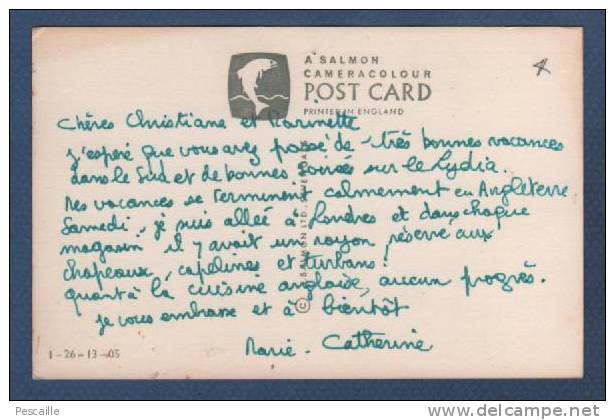 A SALMON
CAMERACOLOUR
POST CARD
PRINTED IN ENGLAND
Chères Christiane et Marinette
J'espère que vous avez passé de très bonnes vacances
dans le Sud et de bonnes soirées sur le Lydia.
Mes vacances se terminent calmement en Angleterre
Samedi, je suis allée à Londres et dans chaque
magasin il y avait un rayon réservé aux
chapeaux, capelines et turbans!
quant à la cuisine anglaise, aucun progrès.
je vous embrasse et à bientôt
Marie-Catherine
© J. SALMON LTD., SEVENOAKS
1-26-13-05
Pescaille
http://pescaille.delcampe.net